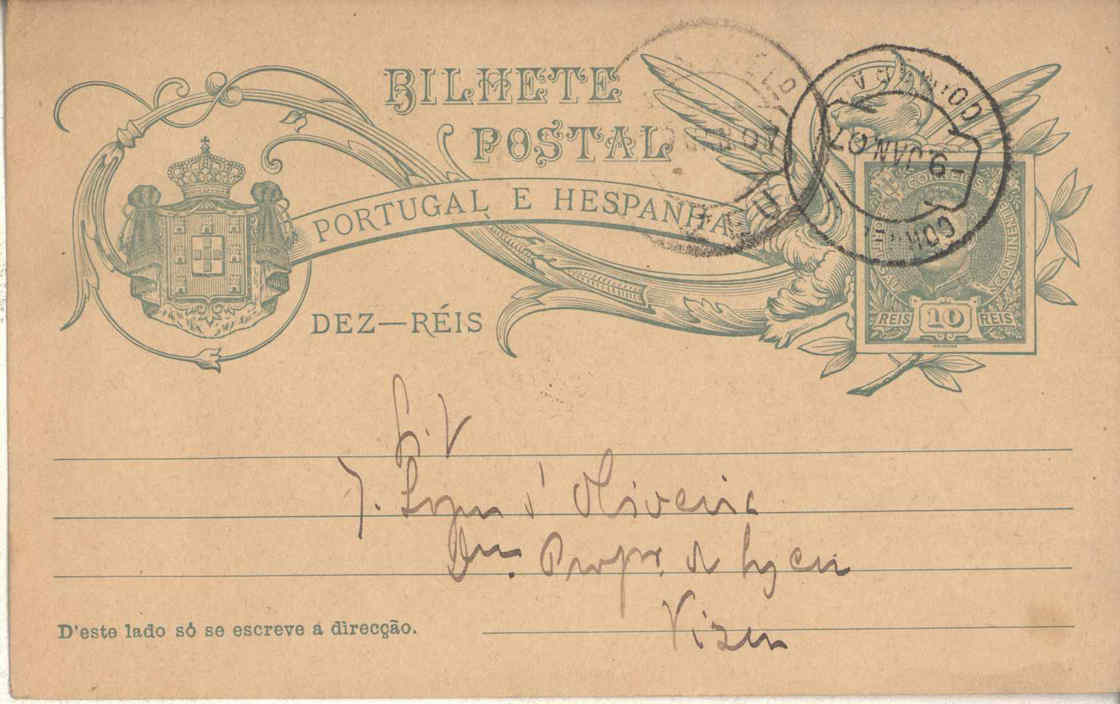 BILHETE
POSTAL
PORTUGAL E HESPANHA
DEZ—RÉIS
COIMBRA
-9 JAN 07
REIS 10 REIS
J. Lopes d'Oliveira
Profr. d Lyceu
Vizeu
D'este lado só se escreve á direcção.